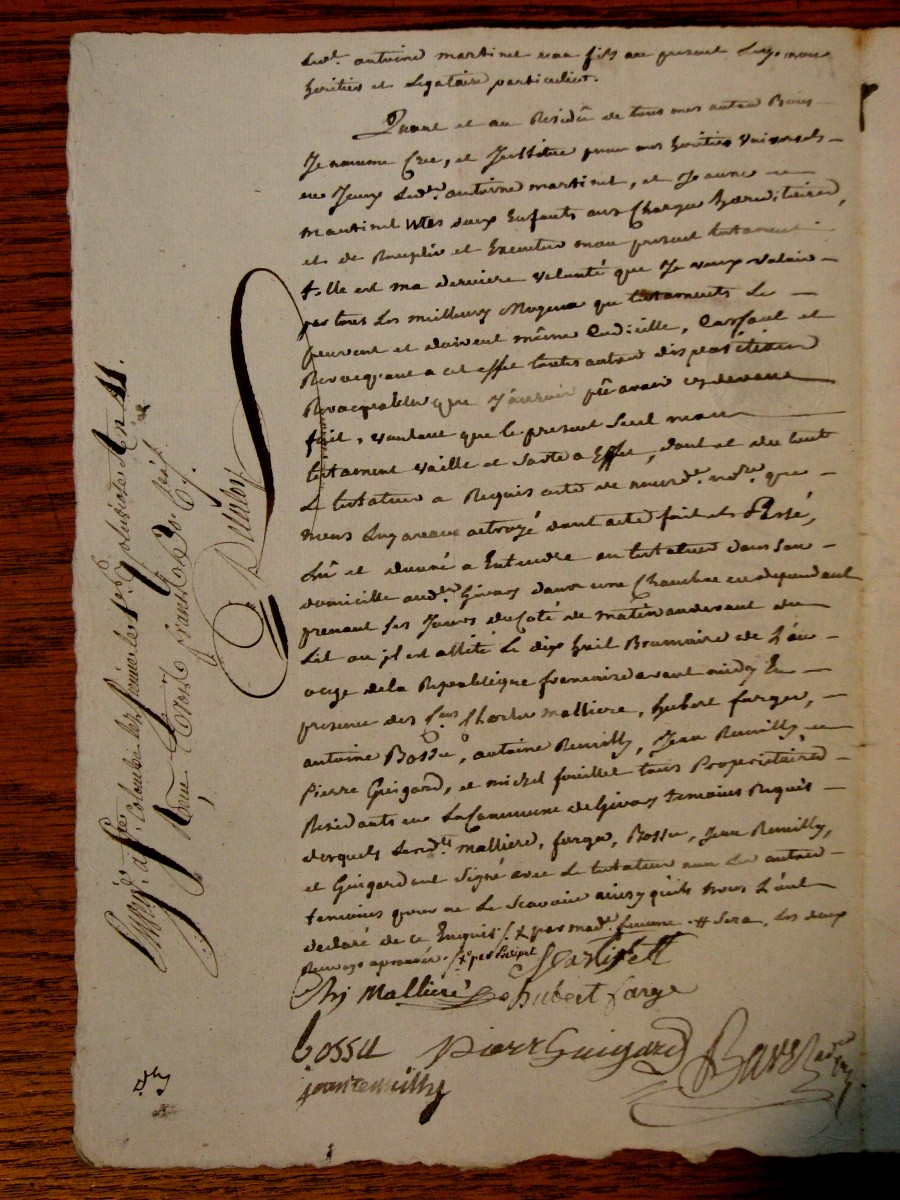 Led.t antoine martinet mon fils au present Luy mon
heritier et Legataire particulier.
Quant et au Residû de tous mes autres Biens
Je nomme Cree, et Jnstitue pour mes heritiers universels
Led.t antoine martinet, et Jeanne
martinet mes deux Enfants aux Charges hereditaires,
et de Remplir et Executer mon present testament
telle est ma derniere volonté que Je veux valoir
par tous Les meilleurs Moyens que testaments Le
peuvent et doivent même Codicille, Cassant et
Revocquant a cet effet toutes autres dispositions
Revocquables que J'aurois pû avoir cy devant
fait, voulant que le present seul mon
testament vaille et sorte a Effet, dont et du tout
Le testateur a Requis acte de nousd. not.re que
nous Luy avons octroyé dont acte fait et Passé,
Lû et donné a Entendre au testateur dans son
domicille aud. Givors dans une Chambre en dependant
prenant ses Jours du Coté de matin audevant du
Lit ou jl est allité Le dix huit Brumaire de L'an
onze de la Republique francoise avant midy En
presence des C.ens Charles malliere, hubert farge,
antoine Bossu, antoine Remilly, Jean Remilly,
Pierre Guigard, et michel fuillet tous Proprietaires
Residants en La Commune de Givors temoins Requis
desquels Lesd.ts malliere, farge, Bossu, Jean Remilly,
et Guigard ont Signé avec Le testateur non Les autres
temoins pour ne Le Scavoir ainsy qu'ils nous L'ont
declaré de ce Enquis /. par mad.e femme. # Sera, Les deux
Renvoys aprouvés. /.
martinett
Ch Malliere hubert farge
bossu pierr Guigard
jean remilly
Enreg.é à S.te Colombe lez Vienne le
an 11.
Reçu trois francs